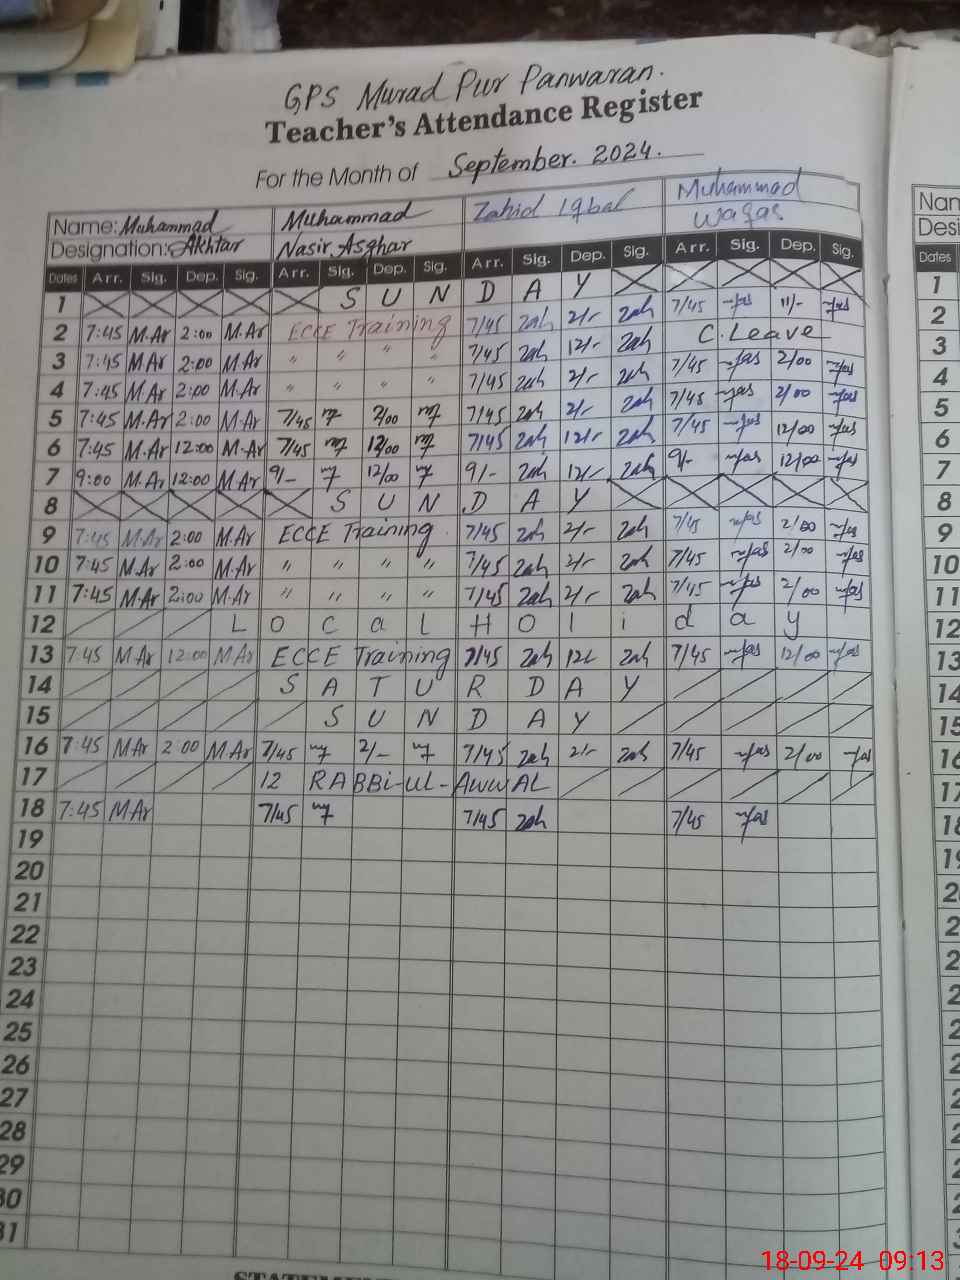 GPS Murad Pur Panwaran.
Teacher's Attendance Register
For the Month of September. 2024.
Name: Muhammad Muhammad Zahid Iqbal Muhammad
Designation: Akhtar Nasir Asghar Waqas
Dates Arr. Sig. Dep. Sig. Arr. Sig. Dep. Sig. Arr. Sig. Dep. Sig. Arr. Sig. Dep. Sig.
1 S U N D A Y
2 7:45 M.Ar 2:00 M.Ar ECCE Training 7/45 zah 2/- zah 7/45 11/-
3 7:45 M.Ar 2:00 M.Ar " " " " 7/45 zah 12/- zah C. Leave
4 7:45 M.Ar 2:00 M.Ar " " " " 7/45 zah 2/- zah 7/45 2/00
5 7:45 M.Ar 2:00 M.Ar 7/45 2/00 7/45 zah 2/- zah 7/45 2/00
6 7:45 M.Ar 12:00 M.Ar 7/45 12/00 7/45 zah 12/- zah 7/45 12/00
7 9:00 M.Ar 12:00 M.Ar 9/- 12/00 9/- zah 12/- zah 9/- 12/00
8 S U N D A Y
9 7:45 M.Ar 2:00 M.Ar ECCE Training 7/45 zah 2/- zah 7/45 2/00
10 7:45 M.Ar 2:00 M.Ar " " " " 7/45 zah 2/- zah 7/45 2/00
11 7:45 M.Ar 2:00 M.Ar " " " " 7/45 zah 2/- zah 7/45 2/00
12 L o c a l H o l i d a y
13 7:45 MAr 12:00 MAr ECCE Training 7/45 zah zah 7/45 12/00
14 S A T U R D A Y
15 S U N D A Y
16 7:45 MAr 2:00 MAr 7/45 2/- 7/45 zah 2/- zah 7/45 2/00
17 12 RABBI-UL-AWWAL
18 7:45 MAr 7/45 7/45 zah 7/45
19
20
21
22
23
24
25
26
27
28
29
30
31
Dates
1
2
3
4
5
6
7
8
9
10
11
12
13
14
15
16
17
18
18-09-24 09:13